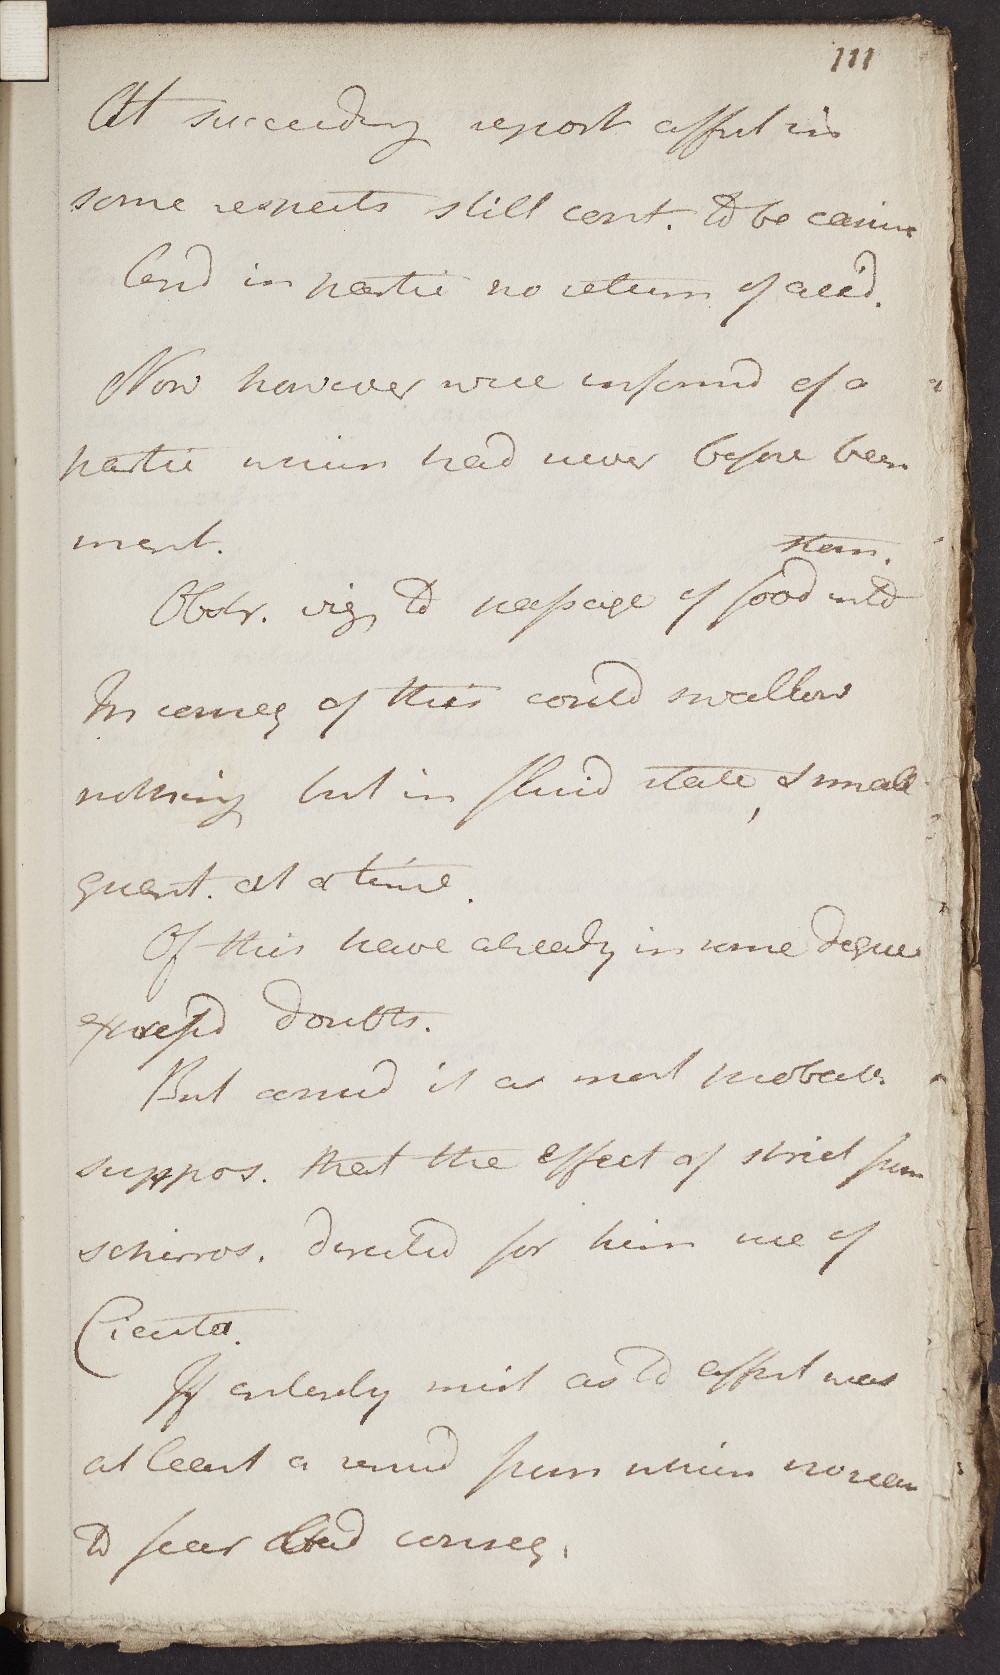 111
At succeeding report affect in
some respects still cont. to be easier
And in partic no return of accid.
Now however were informd of a
partic which had never before been
ment.
stom.
Obstr. viz, to passage of food into
In conseq of this could swallow
nothing but in fluid state, & small
quant. at a time.
Of this have already in some degree
express'd doubts.
But consid it as most probab.
suppos. that the effect of strict from
schirros. directed for him use of
Cicuta.
If entirely mist as to affect was
at least a remed from which no reas
to fear bad conseq.